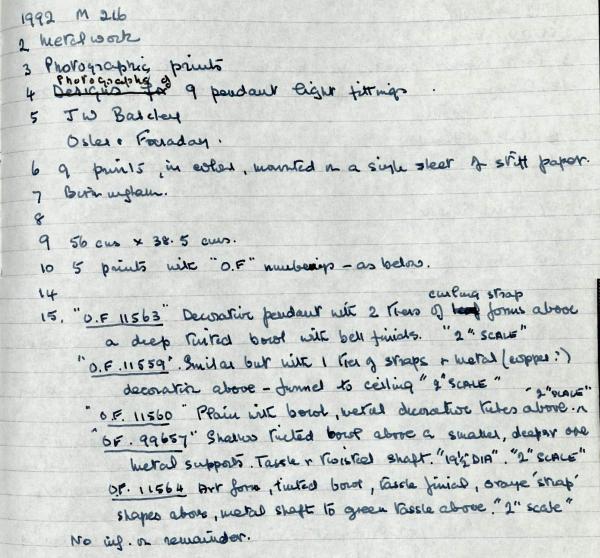 1992 M 216
2 Metalwork
3 Photographic prints
Photographs of
4 Designs for 9 pendant light fittings.
5 JW Barclay
Osler & Faraday.
6 9 prints, in colour, mounted on a single sheet of stiff paper.
7 Birmingham.
8
9 56 cms x 38.5 cms.
10 5 prints with "O.F" numberings - as below.
14
curling strap
15. "O.F 11563" Decorative pendant with 2 tiers of leaf forms above
a deep tinted bowl with bell finials. "2" SCALE"
"O.F. 11559". Similar but with 1 tier of straps & metal (copper?)
decoration above - funnel to ceiling "2" SCALE"
"2" SCALE"
"O.F. 11560" Plain with bowl, metal decorative tubes above.
"OF. 99657" Shallow tinted bowl above a smaller, deeper one
metal supports. Tassle & twisted shaft. "19½ DIA". "2" SCALE"
OF. 11564 Art form, tinted bowl, tassle finial, orange 'strap'
shapes above, metal shaft to green tassle above. "2" scale"
No inf. on remainder.